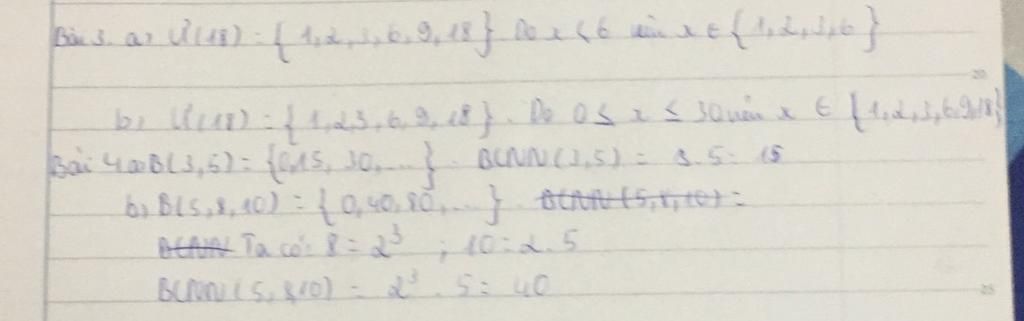 Bài 3. a, Ư(18) = { 1, 2, 3, 6, 9, 18 } Do x < 6 nên x ∈ { 1, 2, 3, 6 }
b, Ư(18) = { 1, 2, 3, 6, 9, 18 }. Do 0 ≤ x ≤ 30 nên x ∈ { 1, 2, 3, 6, 9, 18 }
Bài 4 a, B(3, 5) = { 0, 15, 30, ... }. BCNN(3, 5) = 3.5 = 15
b, B(5, 8, 10) = { 0, 40, 80, ... }. BCNN(5, 8, 10) =
BCNN Ta có: 8 = 2³ ; 10 = 2.5
BCNN(5, 8, 10) = 2³ . 5 = 40